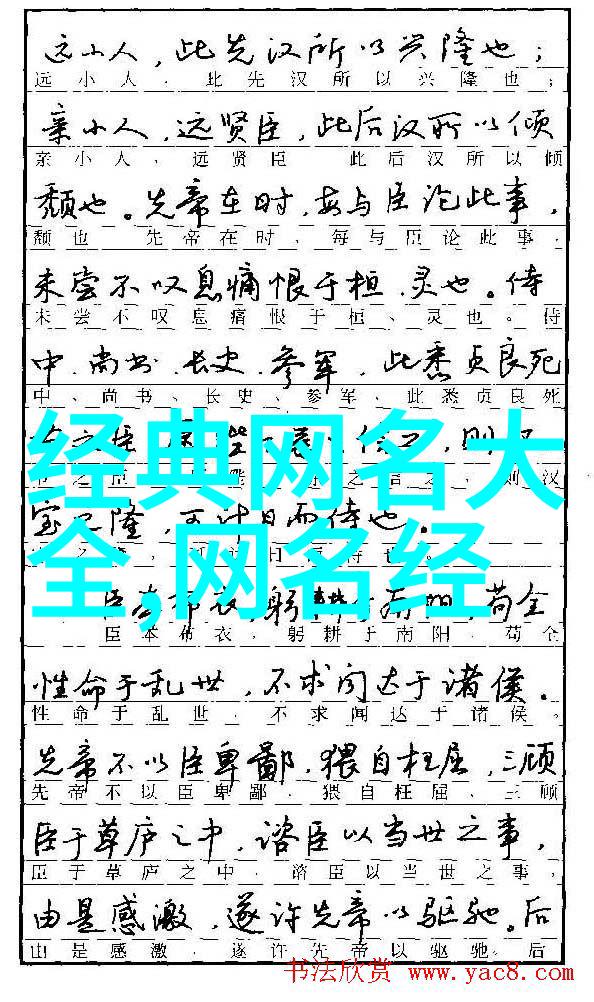 远小人，此先汉所以兴隆也；
远小人，此先汉所以兴隆也；
亲小人，远贤臣，此后汉所以倾
亲小人，远贤臣 此后汉所以倾
颓也。先帝在时，每与臣论此事，
颓也 先帝在时，每与臣论此事，
未尝不叹息痛恨于桓、灵也。侍
未尝不叹息痛恨于桓、灵也。侍
中、尚书、长史、参军，此悉贞良死
中、尚书、长史、参军，此悉贞良死
则
之臣 之信之，则汉
经典网名大
隆，可计日而待也。
全,网名经
臣本布衣，躬耕于南阳，苟全
臣本布衣，躬耕于南阳，苟全
性命于乱世，不求闻达于诸侯。
性命于乱世，不求闻达于诸侯。
先帝不以臣卑鄙，猥自枉屈，三顾
先帝不以臣卑鄙，猥自枉屈、三顾
臣于草庐之中，谘臣以当世之事，
臣于草庐之中，谘臣以当世之事，
由是感激，遂许先帝以驱驰。后
由是感激，遂许先帝以驱驰。后
书法欣赏 www.yac8.com